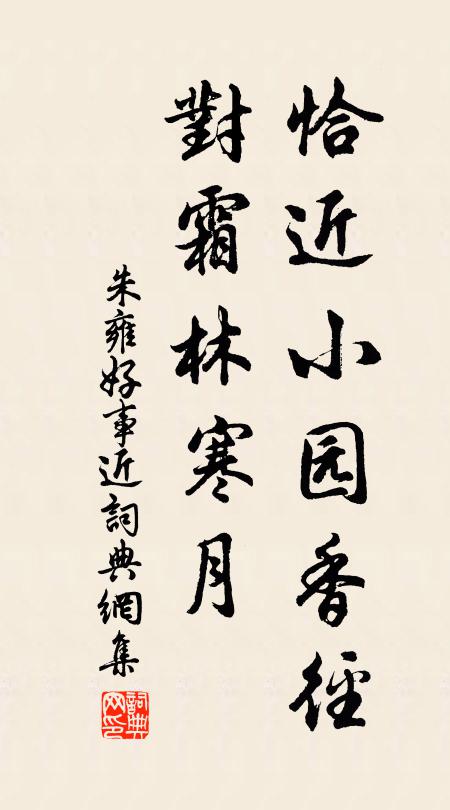 恰近小园香徑
對霜林寒月
朱雍好事近詞典網集
詞典网印